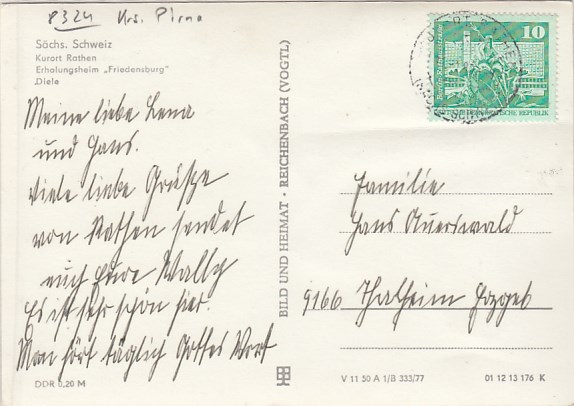 8324 Krs. Pirna
Sächs. Schweiz
Kurort Rathen
Erholungsheim „Friedensburg"
Diele
Meine liebe Lena
und Hans.
Viele liebe Grüße
von Rathen sendet
euch Eure Wally
Es ist sehr schön hier.
Man hört täglich Gottes Wort
DDR 0,20 M
BILD UND HEIMAT · REICHENBACH (VOGTL)
10
DEUTSCHE DEMOKRATISCHE REPUBLIK
Familie
Hans Auerswald
9166 Thalheim Erzgeb
V 11 50 A 1/B 333/77
01 12 13 176 K